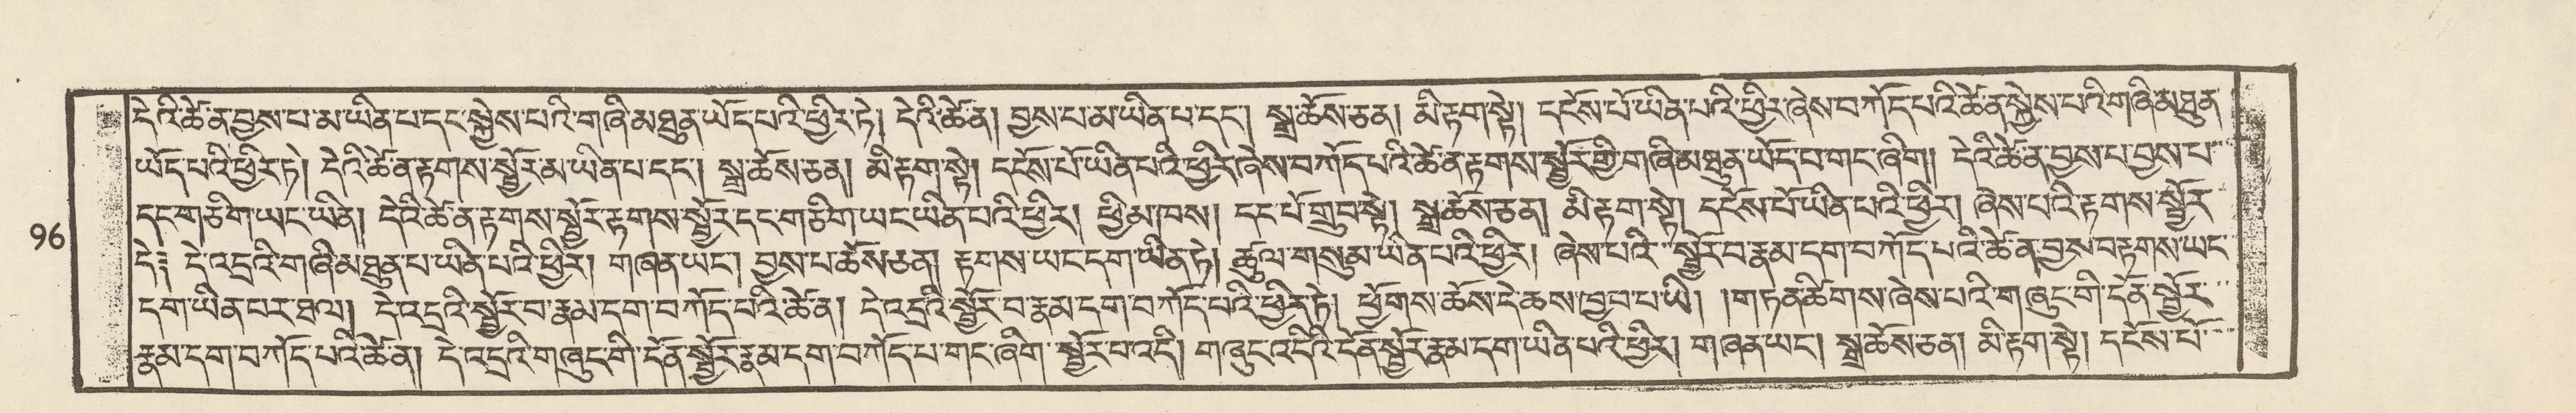 དེའི་ཚེ་ན་བྱས་པ་མ་ཡིན་པ་དང་སྐྱེས་པའི་གཞི་མཐུན་ཡོད་པའི་ཕྱིར་ཏེ། དེའི་ཚེ་ན། བྱས་པ་མ་ཡིན་པ་དང་། སྒྲ་ཆོས་ཅན། མི་རྟག་སྟེ། དངོས་པོ་ཡིན་པའི་ཕྱིར་ཞེས་བཀོད་པའི་ཚེ་ན་སྐྱེས་པའི་གཞི་མཐུན་
ཡོད་པའི་ཕྱིར་ཏེ། དེའི་ཚེ་ན་རྟགས་སྦྱོར་མ་ཡིན་པ་དང་། སྒྲ་ཆོས་ཅན། མི་རྟག་སྟེ། དངོས་པོ་ཡིན་པའི་ཕྱིར་ཞེས་བཀོད་པའི་ཚེ་ན་རྟགས་སྦྱོར་གྱི་གཞི་མཐུན་ཡོད་པ་གང་ཞིག། དེའི་ཚེ་ན་བྱས་པ་བྱས་པ་
དང་གཅིག་ཡང་ཡིན། དེའི་ཚེ་ན་རྟགས་སྦྱོར་རྟགས་སྦྱོར་དང་གཅིག་ཡང་ཡིན་པའི་ཕྱིར། ཕྱི་མ་ཁས། དང་པོ་གྲུབ་སྟེ། སྒྲ་ཆོས་ཅན། མི་རྟག་སྟེ། དངོས་པོ་ཡིན་པའི་ཕྱིར། ཞེས་པའི་རྟགས་སྦྱོར་
96
དེ་ དེ་འདྲའི་གཞི་མཐུན་པ་ཡིན་པའི་ཕྱིར། གཞན་ཡང་། བྱས་པ་ཆོས་ཅན། རྟགས་ཡང་དག་ཡིན་ཏེ། ཚུལ་གསུམ་ཡིན་པའི་ཕྱིར། ཞེས་པའི་སྦྱོར་བ་རྣམ་དག་བཀོད་པའི་ཚེ་ན་བྱས་བརྟགས་ཡང་
དག་ཡིན་པར་ཐལ། དེ་འདྲའི་སྦྱོར་བ་རྣམ་དག་བཀོད་པའི་ཚེ་ན། དེ་འདྲའི་སྦྱོར་བ་རྣམ་དག་བཀོད་པའི་ཕྱིར་ཏེ། ཕྱོགས་ཆོས་ངེ་ཆས་བྱ་བ་པ་ཡི། །གཏན་ཚིགས་ཞེས་པའི་གཞུང་གི་དོན་སྦྱོར་
རྣམ་དག་བཀོད་པའི་ཚེ་ན། དེ་འདྲའི་གཞུང་གི་དོན་སྦྱོར་རྣམ་དག་བཀོད་པ་གང་ཞིག་ སྦྱོར་བ་འདི། གཞུང་འདིའི་དོན་སྦྱོར་རྣམ་དག་ཡིན་པའི་ཕྱིར། གཞན་ཡང་། སྒྲ་ཆོས་ཅན། མི་རྟག་སྟེ། དངོས་པོ་